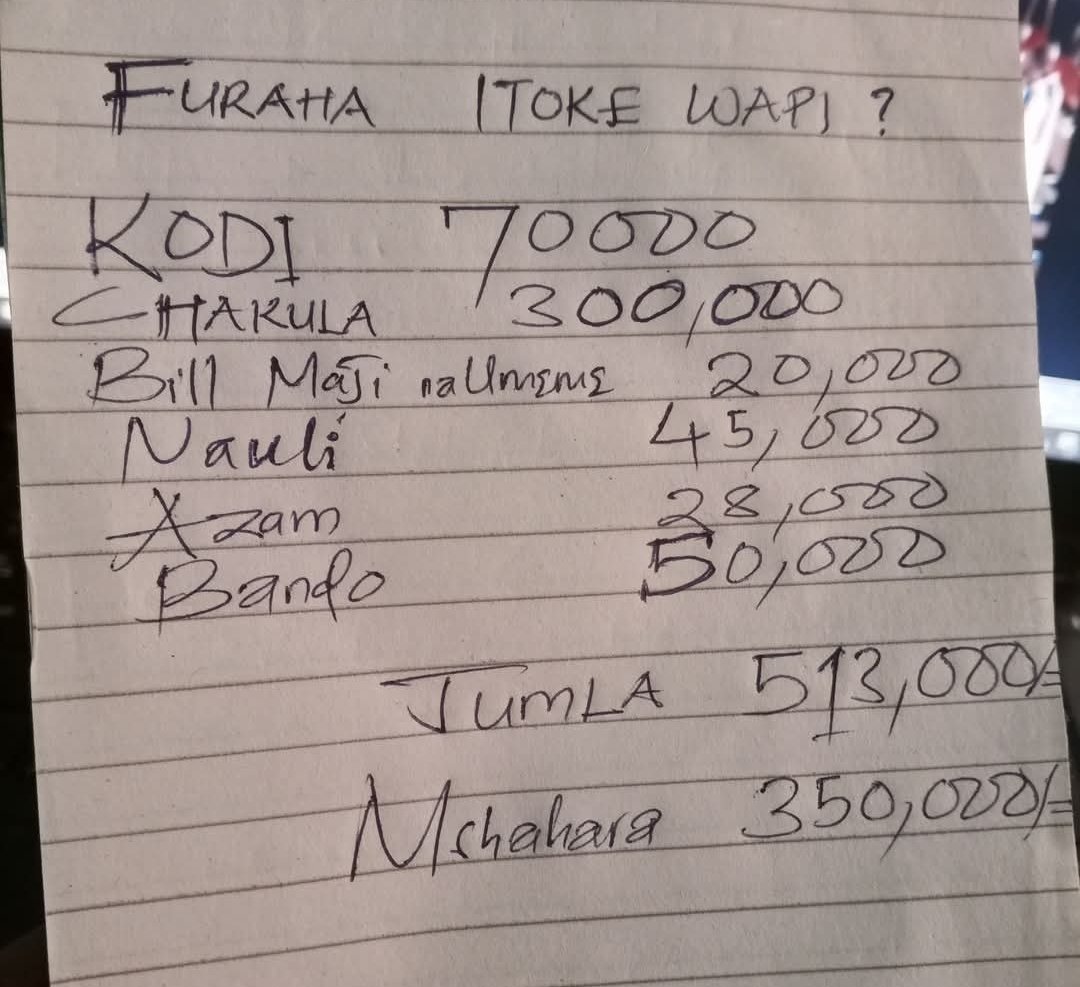 FURAHA ITOKE WAPI ?
KODI 70000
CHAKULA 300,000
Bill Maji na Umeme 20,000
Nauli 45,000
Azam 28,000
Bando 50,000
JUMLA 513,000/=
Mshahara 350,000/=